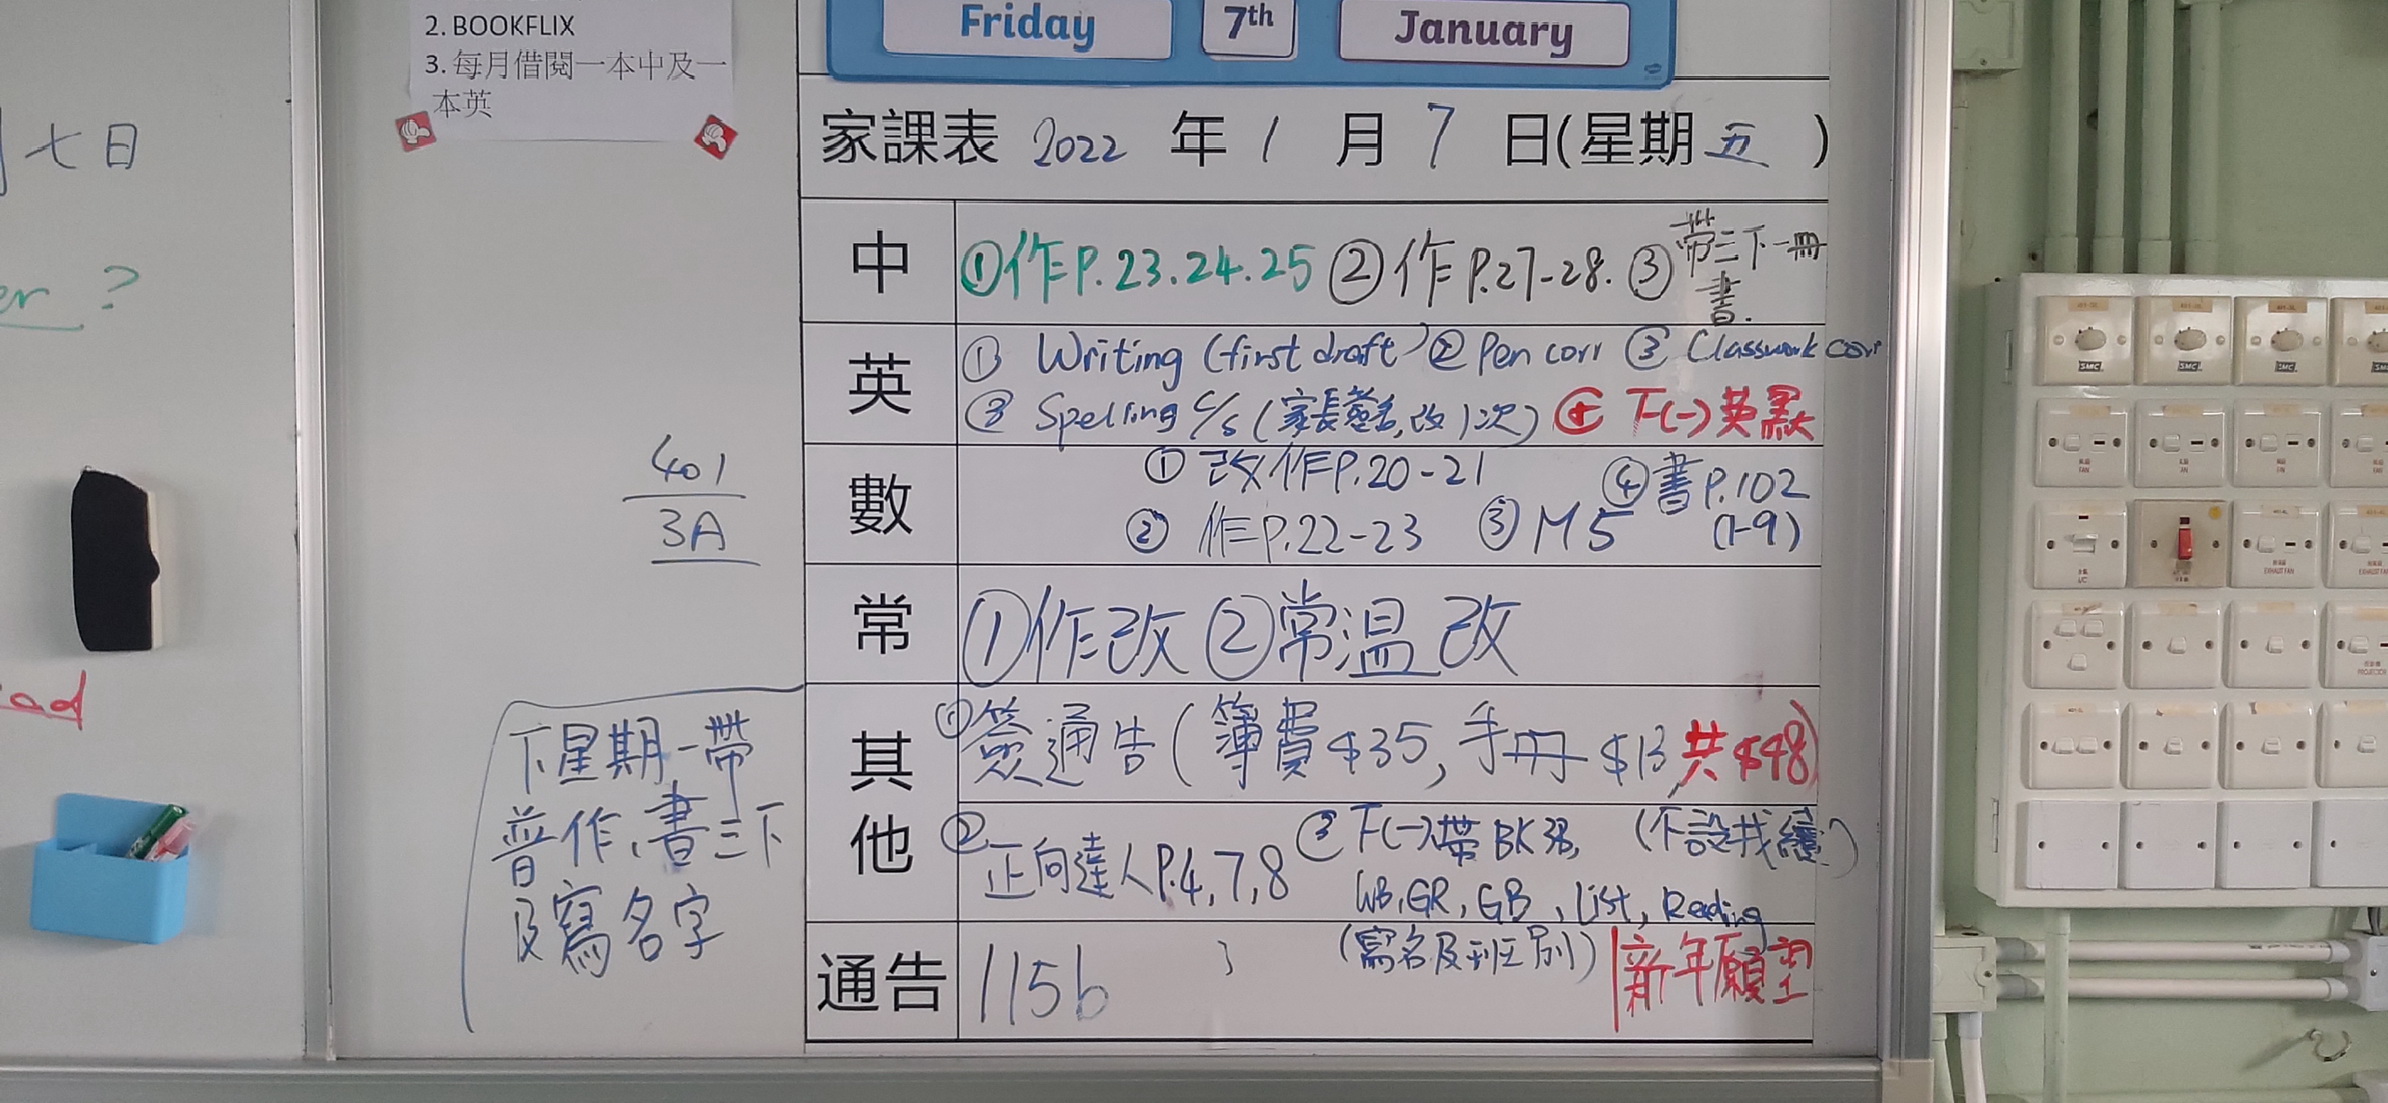 2. BOOKFLIX
3. 每月借閱一本中及一
本英
七日
?
401
3A
下星期一帶
普作、書三下
及寫名字
Friday 7th January
家課表 2022 年 1 月 7 日(星期五)
中 ①作P.23.24.25 ②作P.27-28. ③帶三下一冊
書.
英 ① Writing (first draft) ② Pen corr ③ Classwork corr
③ Spelling c/s (家長簽名,改1次) ④ 下(一)英默
數 ① 改作P.20-21 ④書P.102
② 作P.22-23 ③M5 (1-9)
常 ①作改 ②常溫改
其他 ①簽通告(簿費$35,手冊$13共$48)
②正向達人P.4,7,8 ③下(一)帶BK3B, (不設找續)
WB,GR,GB,List,Reading
(寫名及班別)
通告 115b 新年願望